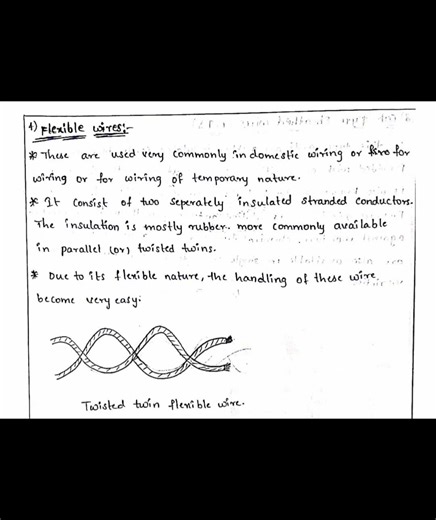 4) Flexible wires:-
* These are used very commonly in domestic wiring or for
wiring or for wiring of temporary nature.
* It consist of two seperately insulated stranded conductors.
The insulation is mostly rubber. more commonly available
in parallel (or) twisted twins.
* Due to its flexible nature, the handling of these wire
become very easy.
Twisted twin flexible wire.